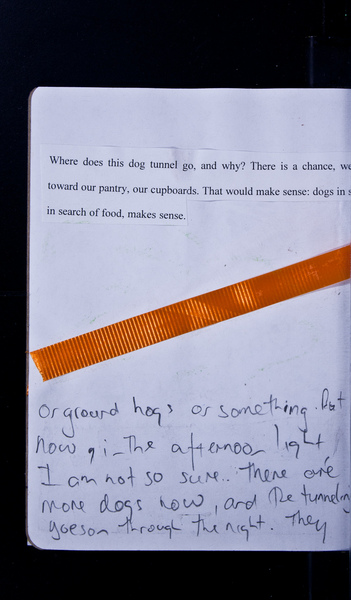 Where does this dog tunnel go, and why? There is a chance, we
toward our pantry, our cupboards. That would make sense: dogs in s
in search of food, makes sense.
Or ground hogs or something. But
now, in the afternoon light,
I am not so sure.. There are
more dogs now, and the tunneling
goes on through the night. They